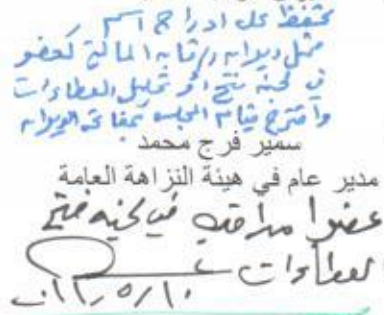 نتحفظ على ادراج اسم
ممثل ديوان رقابة المالية كعضو
في لجنة فتح او تحليل العطاءات
واقترح قيام المجلس بمفاتحة الديوان
سمير فرج محمد
مدير عام في هيئة النزاهة العامة
عضوا مراقب في لجنه فتح
العطاءات